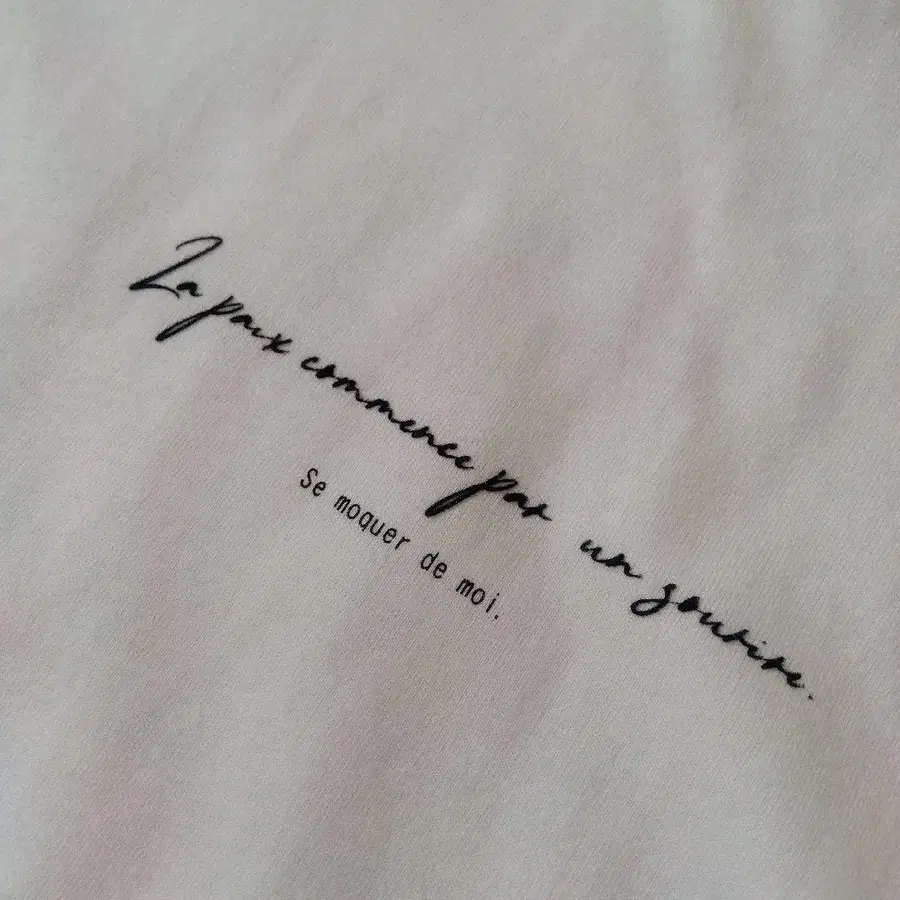 La paix commence par un sourire.
Se moquer de moi.